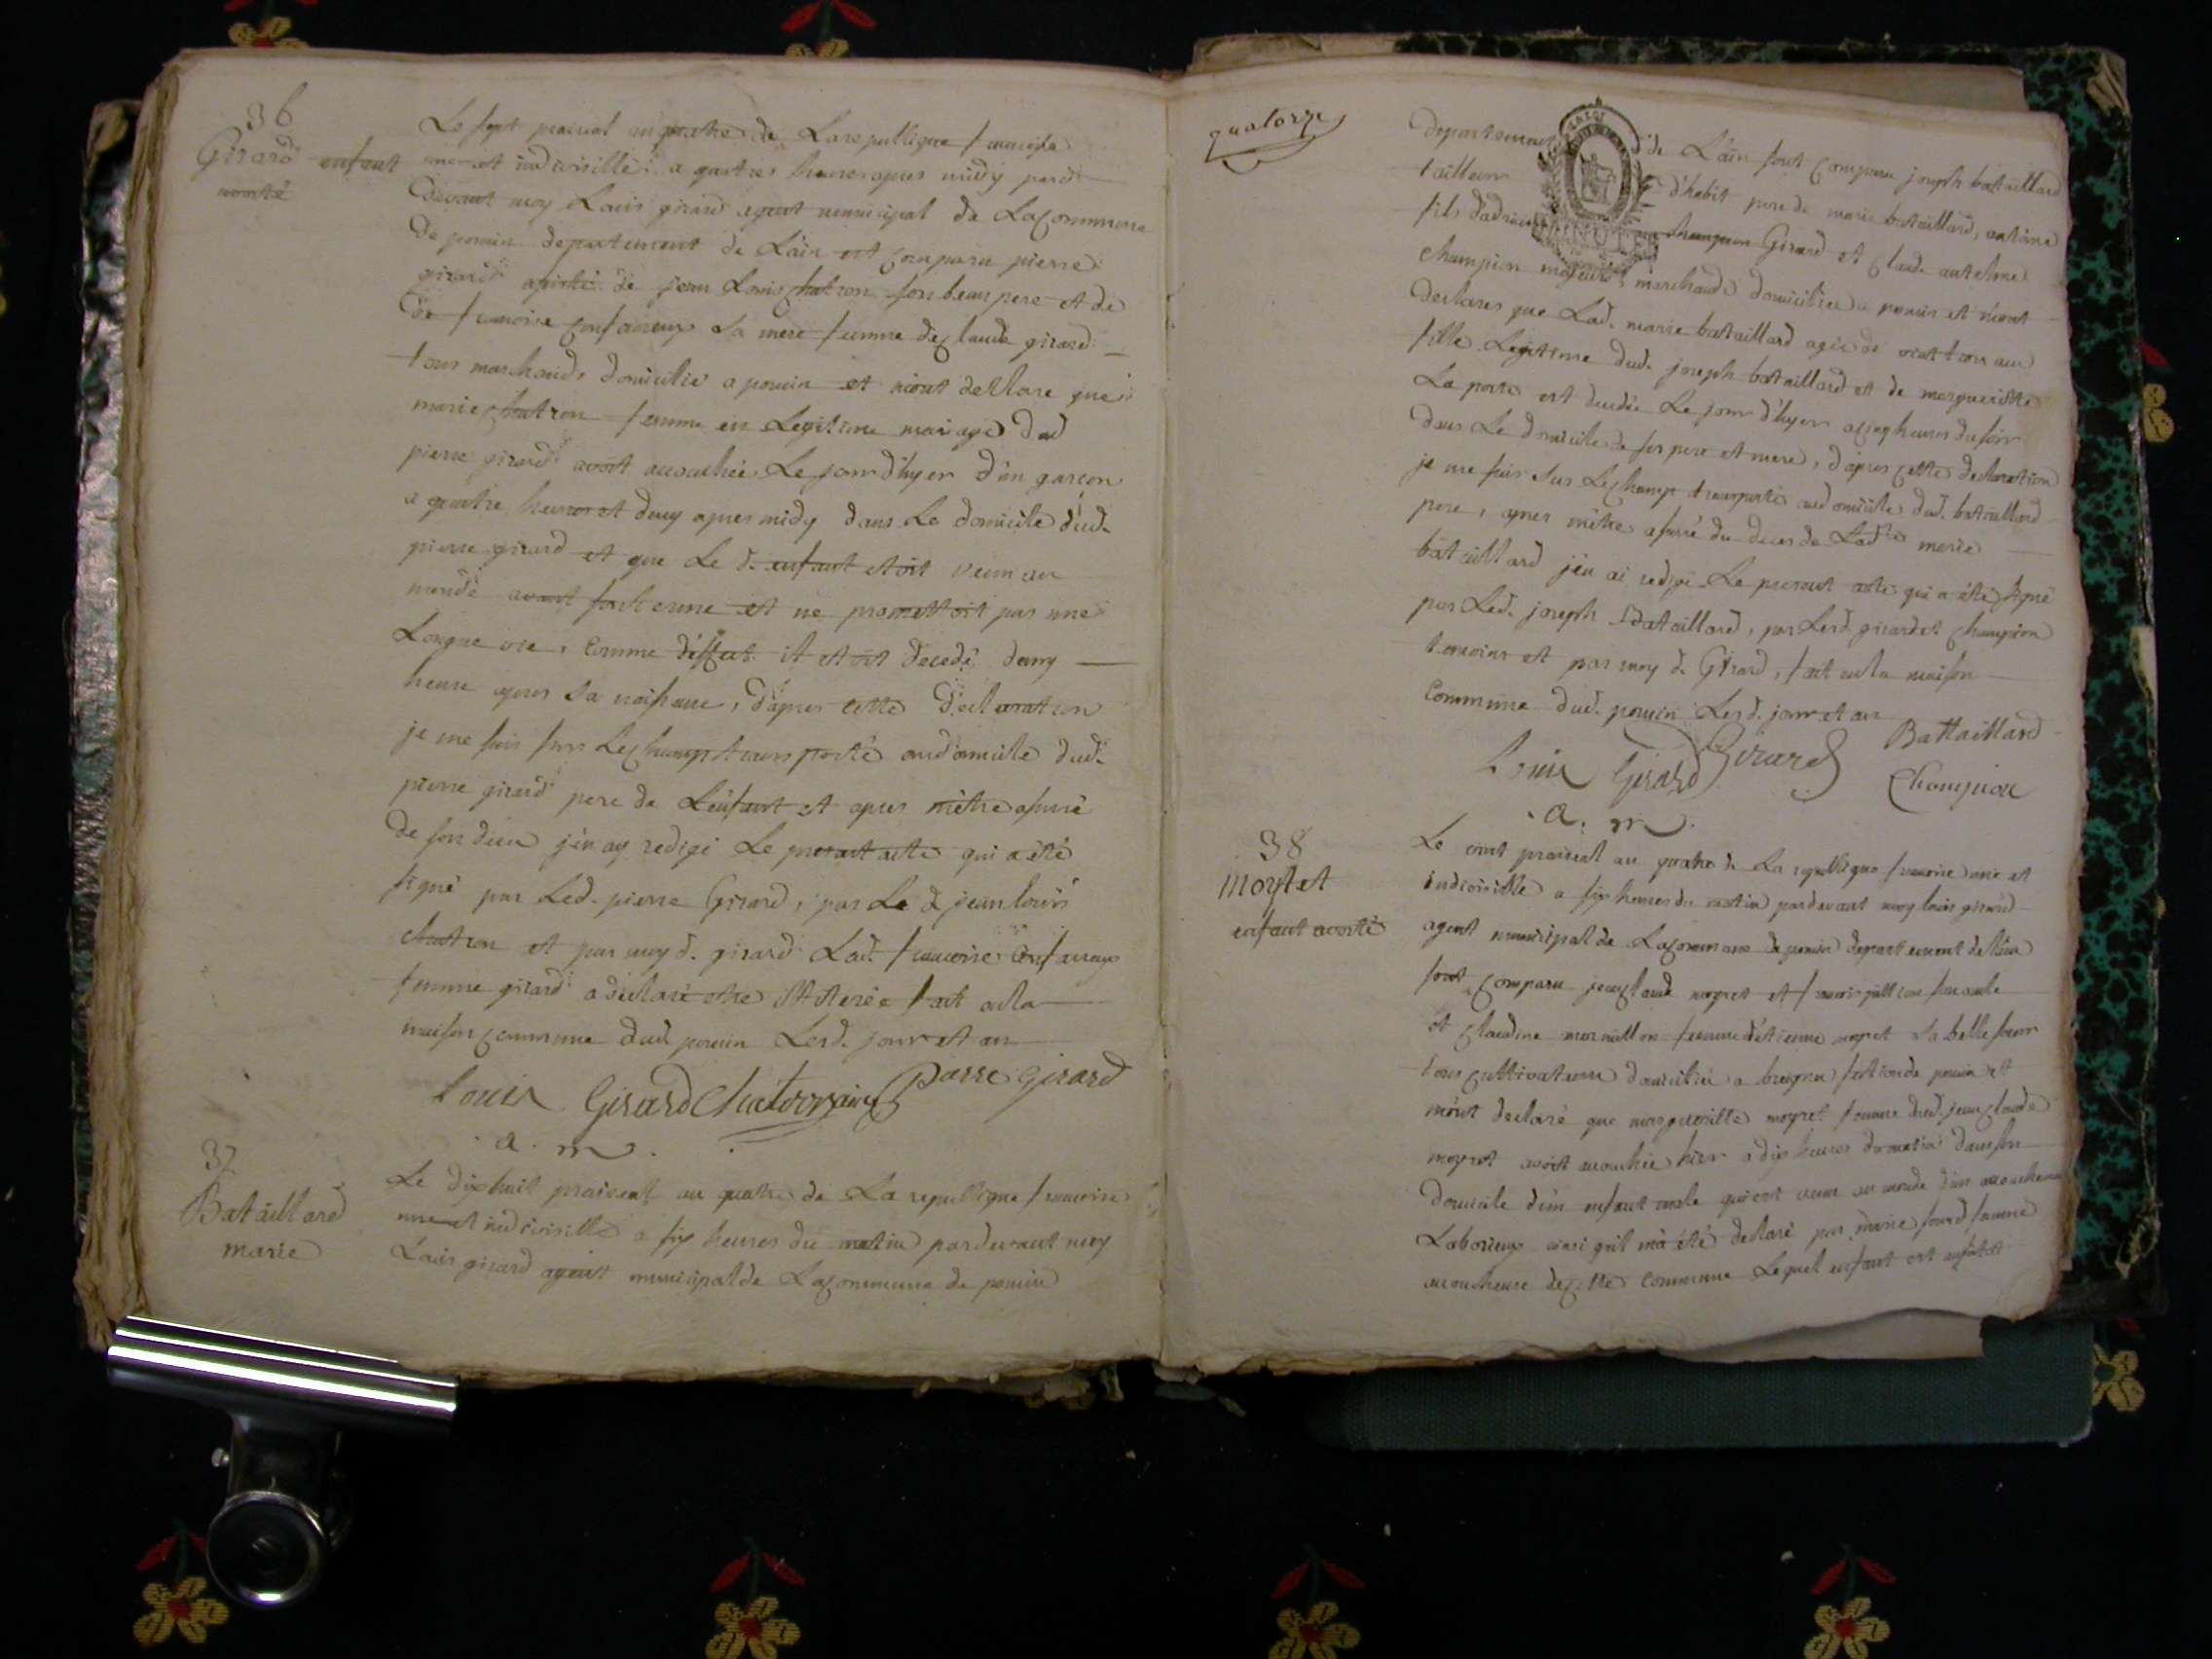 36
Girard enfant
avorté
Le sept prairial an quatre de La republique francoise
une et indivisille a quatres heures apres midy pard
devant moy Louis girard agent municipal de La commune
de poncin departement de L'ain est comparu pierre
girard assisté de jean Louis chatron son beau pere et de
de francoise sa mere femme de claude girard
tous marchands domicilié a poncin et m'ont desllare que
marie chatron femme en Legitime mariage dud
pierre girard avoit accouchée Le jour d'hyer d'un garcon
a quatre heures et demy apres midy dans Le domicile dud.
pierre girard et que Le d. enfant etoit venu au
monde avant son terme et ne promettoit pas une
Longue vie, comme d'effect it etoit decedé demy
heure apres sa naissance, d'apres cette declaration
je me suis sur Le champ transporté au domicile dud.
pierre girard pere de L'enfant et apres m'etre assuré
de son deces j'en ay redigé Le presant acte qui a été
signé par Led. pierre Girard, par Le d. jean louis
chatron et par moy d. girard Lad. francoise
femme girard a declaré etre illiterée fait a la
maison commune dud. poncin Lesd. jour et an
Louis Girard Chatron Pierre Girard
a. m.
37
Bataillard
marie
Le dixhuit prairial an quatre de La republique francoise
une et indivisille a six heures du matin pardevant moy
Louis girard agent municipal de La commune de poncin
quatorze
departement de L'ain sont comparu joseph bataillard
tailleur d'habit pere de marie bataillard, antoine
MINUTES
fils d'adrien champion Girard et claude antelme
champion majeurs marchands domiciliés a poncin et m'ont
declares que Lad. marie bataillard agée de
fille Legitime dud. joseph bataillard et de marguerite
La porte est decedée Le jour d'hyer a cinq heures du soir
dans Le domicile de ses pere et mere, d'apres cette declaration
je me suis sur Le champ transporté au domicile dud. bataillard
pere, apres m'etre assuré du deces de Lad. marie
bataillard j'en ai redigé Le presant acte qui a été signé
par Led. joseph Bataillard, par Lesd. girard et champion
temoins et par moy d. Girard, fait en la maison
commune dud. poncin Lesd. jour et an
Battaillard
Louis Girard Girard
Champion
a. m.
38
moyret
enfant avorté
Le vint prairial an quatre de La republique francoise une et
indivisille a six heures du matin pardevant moy louis girard
agent municipal de La commune de poncin departement de l'ain
sont comparu jean claude moyret et
et claudine femme d'etienne moyret sa belle soeur
tous cultivateurs domicilié a section de poncin et
m'ont declaré que marguerite moyret femme dud. jean claude
moyret avoit accouchée hier a dix heures du matin dans son
domicile d'un enfant male qui est venu au monde d'un accouchement
Laborieux ainsi qu'il m'a été declaré par marie femme
accoucheuse de cette commune Lequel enfant est